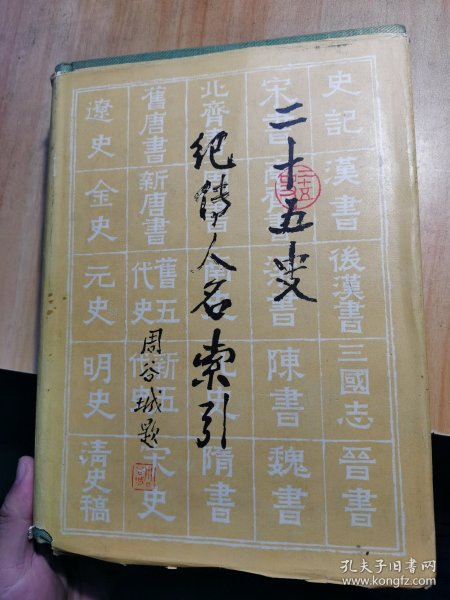 二十五史
纪传人名索引
周谷城题
史記
漢書
後漢書
三國志
晉書
宋書
陳書
魏書
北齊書
隋書
舊唐書
新唐書
舊五代史
宋史
遼史
金史
元史
明史
清史稿
孔夫子旧书网
www.kongfz.com